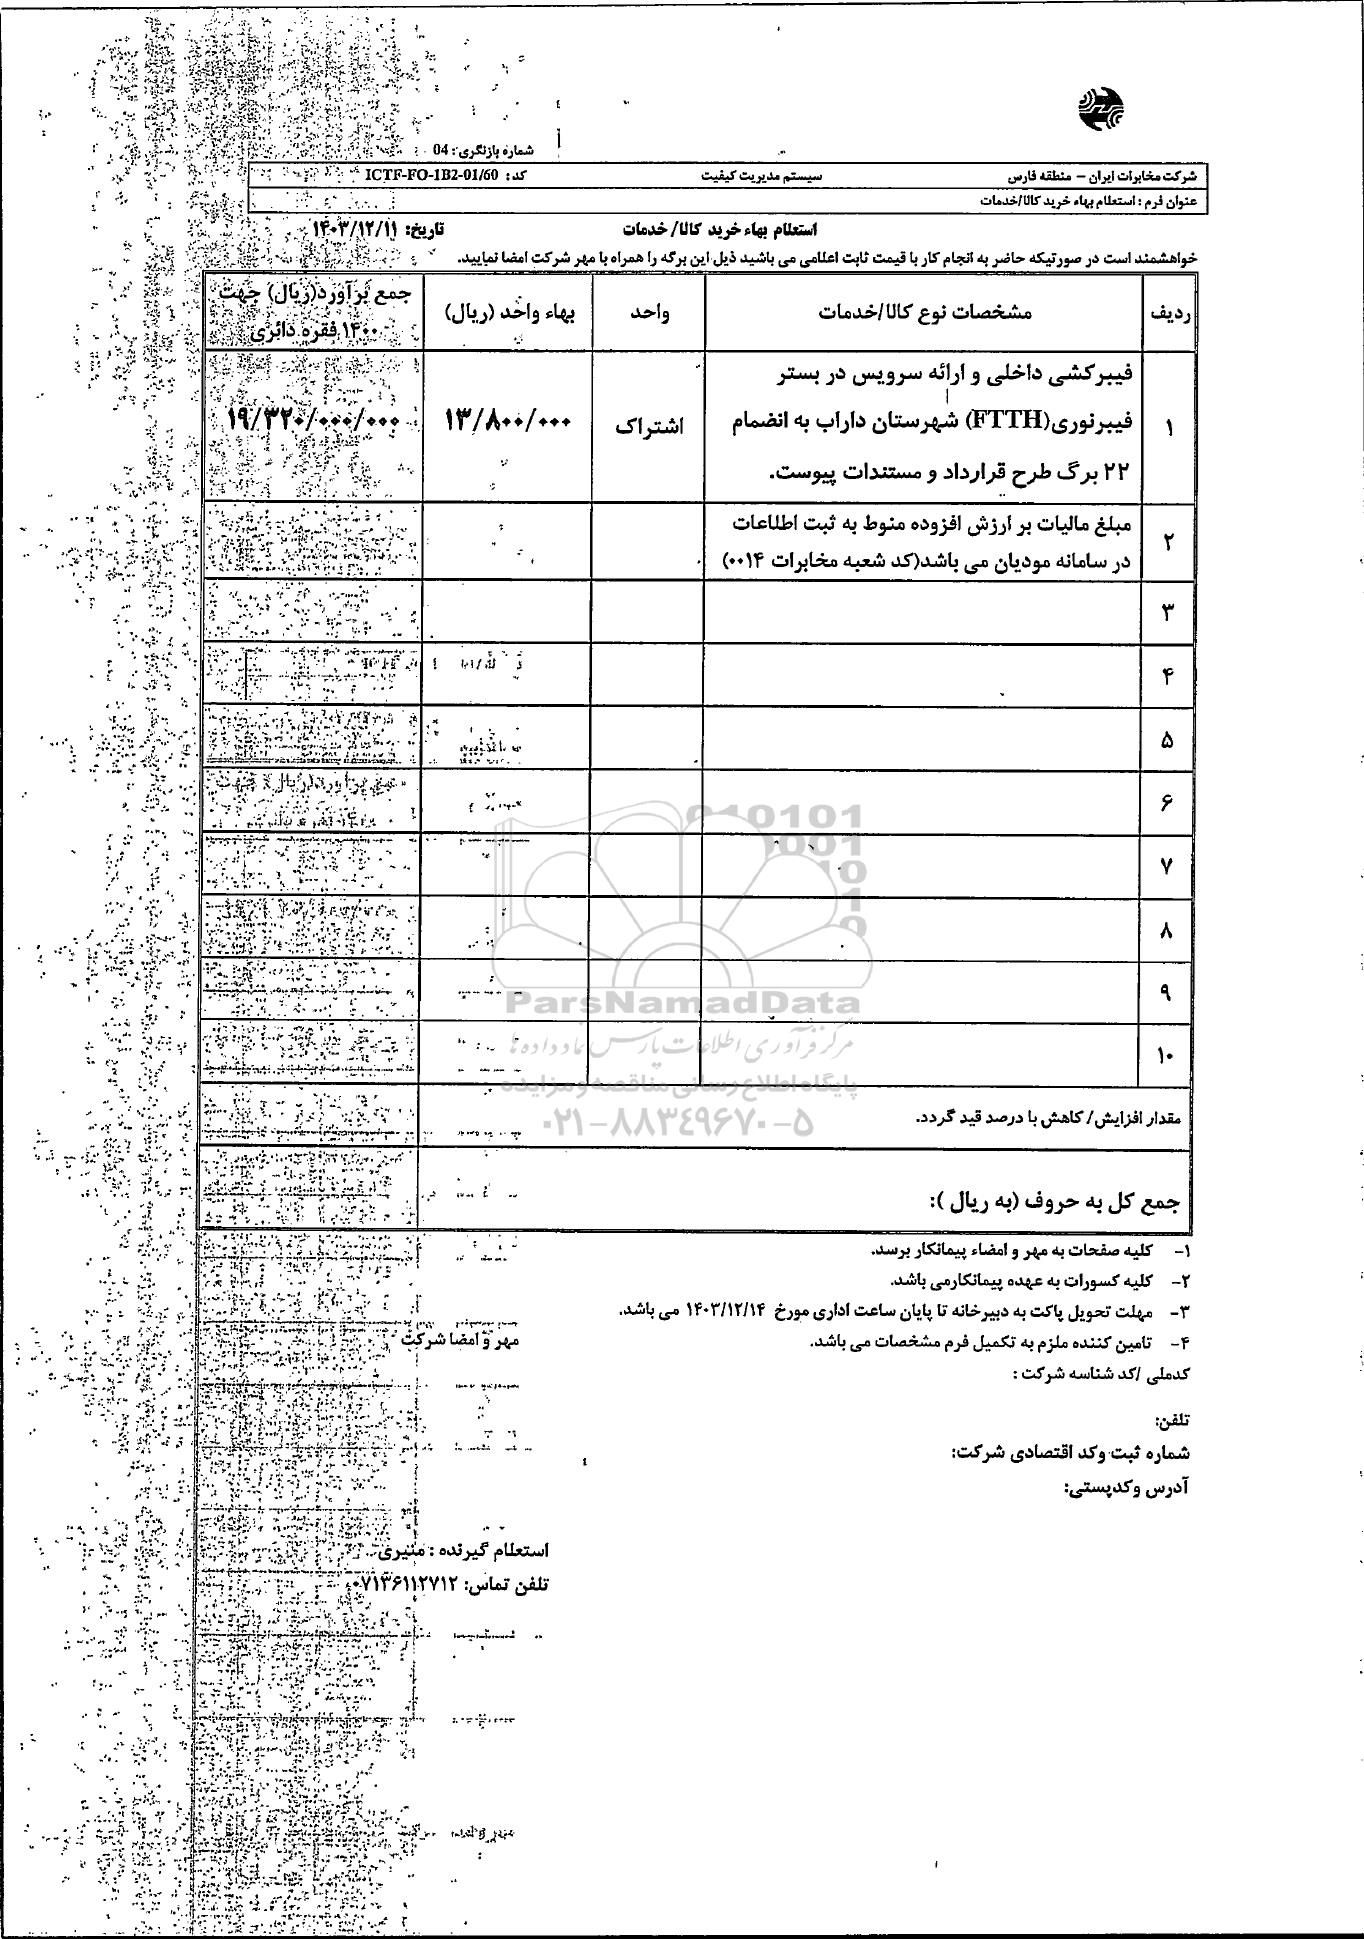 شماره بازنگری: 04
شرکت مخابرات ایران – منطقه فارس سیستم مدیریت کیفیت کد: ICTF-FO-1B2-01/60
عنوان فرم : استعلام بهاء خرید کالا/خدمات
استعلام بهاء خرید کالا/ خدمات تاریخ: ۱۴۰۳/۱۲/۱۱
خواهشمند است در صورتیکه حاضر به انجام کار با قیمت ثابت اعلامی می باشید ذیل این برگه را همراه با مهر شرکت امضا نمایید.
ردیف مشخصات نوع کالا/خدمات واحد بهاء واحد (ریال) جمع برآورد(ریال) جهت
۱۴۰۰ فقره دائری
۱ فیبرکشی داخلی و ارائه سرویس در بستر
فیبرنوری(FTTH) شهرستان داراب به انضمام
۲۲ برگ طرح قرارداد و مستندات پیوست.
اشتراک ۱۳/۸۰۰/۰۰۰ ۱۹/۳۲۰/۰۰۰/۰۰۰
۲ مبلغ مالیات بر ارزش افزوده منوط به ثبت اطلاعات
در سامانه مودیان می باشد(کد شعبه مخابرات ۰۰۱۴)
۳
۴
۵
۶
۷
۸
۹
۱۰
مقدار افزایش/ کاهش با درصد قید گردد.
جمع کل به حروف (به ریال ):
۱- کلیه صفحات به مهر و امضاء پیمانکار برسد.
۲- کلیه کسورات به عهده پیمانکارمی باشد.
۳- مهلت تحویل پاکت به دبیرخانه تا پایان ساعت اداری مورخ ۱۴۰۳/۱۲/۱۴ می باشد.
۴- تامین کننده ملزم به تکمیل فرم مشخصات می باشد.
مهر و امضا شرکت
کدملی /کد شناسه شرکت :
تلفن:
شماره ثبت وکد اقتصادی شرکت:
آدرس وکدپستی:
استعلام گیرنده : منیری
تلفن تماس: ۰۷۱۳۶۱۱۲۷۱۲
ParsNamadData
مرکز فرآوری اطلاعات پارس نماد داده ها
پایگاه اطلاع رسانی مناقصه و مزایده
۰۲۱-۸۸۳۴۹۶۷۰-۵